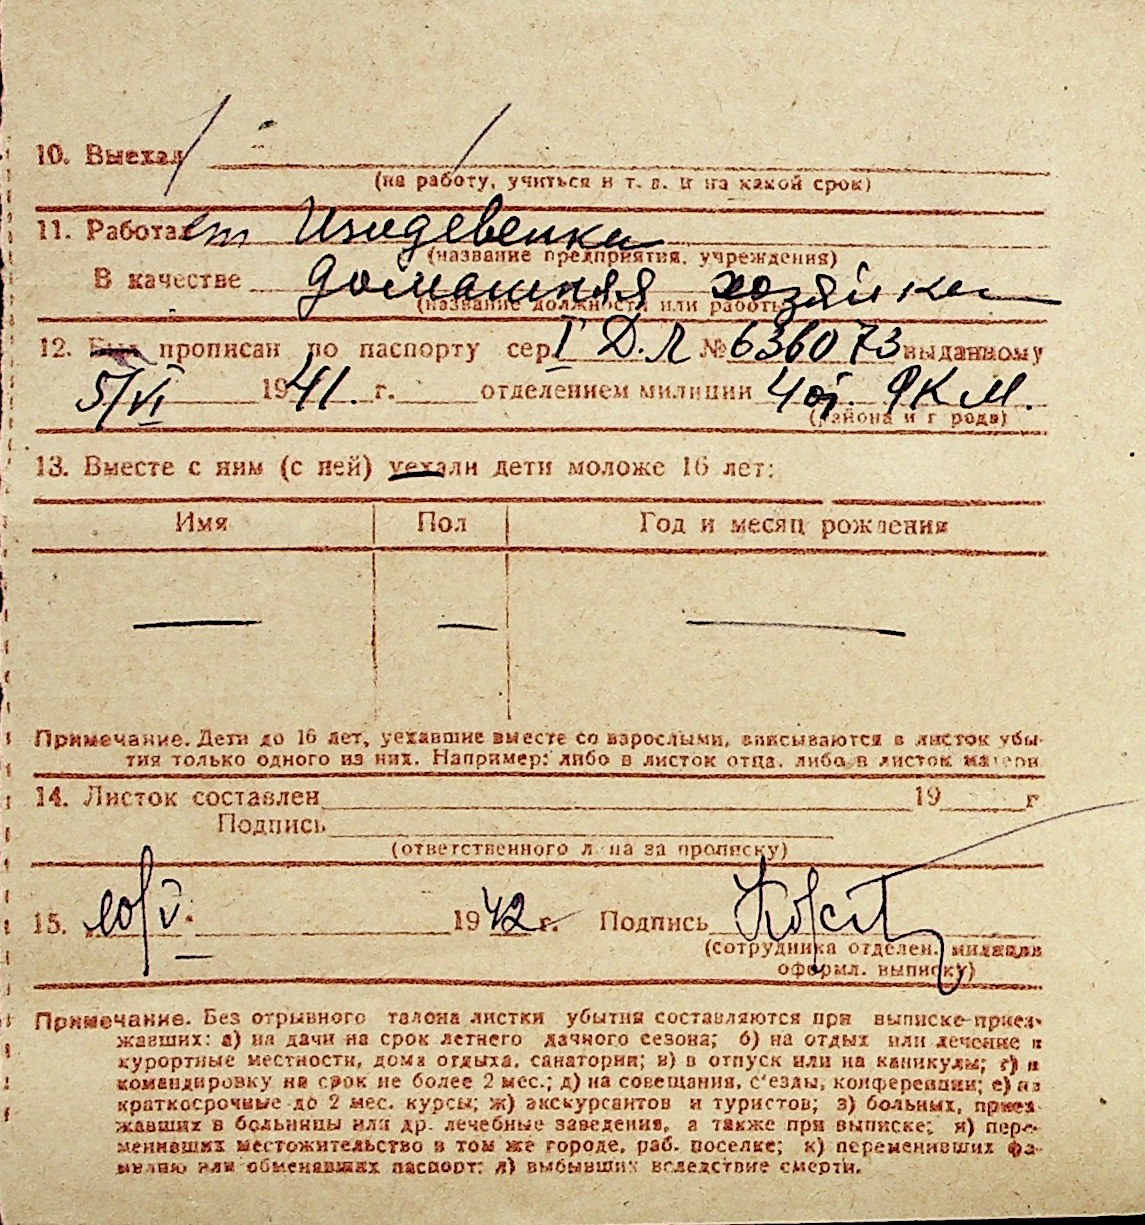 10. Выехал
(на работу, учиться и т. д. и на какой срок)
11. Работает Иждевенка
(название предприятия, учреждения)
В качестве домашняя хозяйка
(название должности или работы)
12. Был прописан по паспорту сер. I Д.Л № 636073 выданному
5/VI 1941 г. отделением милиции 4 от. РКМ.
(района и города)
13. Вместе с ним (с ней) уехали дети моложе 16 лет:
Имя Пол Год и месяц рождения
— — —
Примечание. Дети до 16 лет, уехавшие вместе со взрослыми, вписываются в листок убы-
тия только одного из них. Например: либо в листок отца, либо в листок матери
14. Листок составлен 19 г
Подпись
(ответственного лица за прописку)
15. 10/V. 1942 г. Подпись
(сотрудника отделен. милиции
оформл. выписку)
Примечание. Без отрывного талона листки убытия составляются при выписке приез-
жавших: а) на дачи на срок летнего дачного сезона; б) на отдых или лечение в
курортные местности, дома отдыха, санатории; в) в отпуск или на каникулы; г) в
командировку на срок не более 2 мес.; д) на совещания, с'езды, конференции; е) на
краткосрочные до 2 мес. курсы; ж) экскурсантов и туристов; з) больных, приез-
жавших в больницы или др. лечебные заведения, а также при выписке; и) пере-
менивших местожительство в том же городе, раб. поселке; к) переменивших фа-
милию или обменявших паспорт; л) выбывших вследствие смерти.